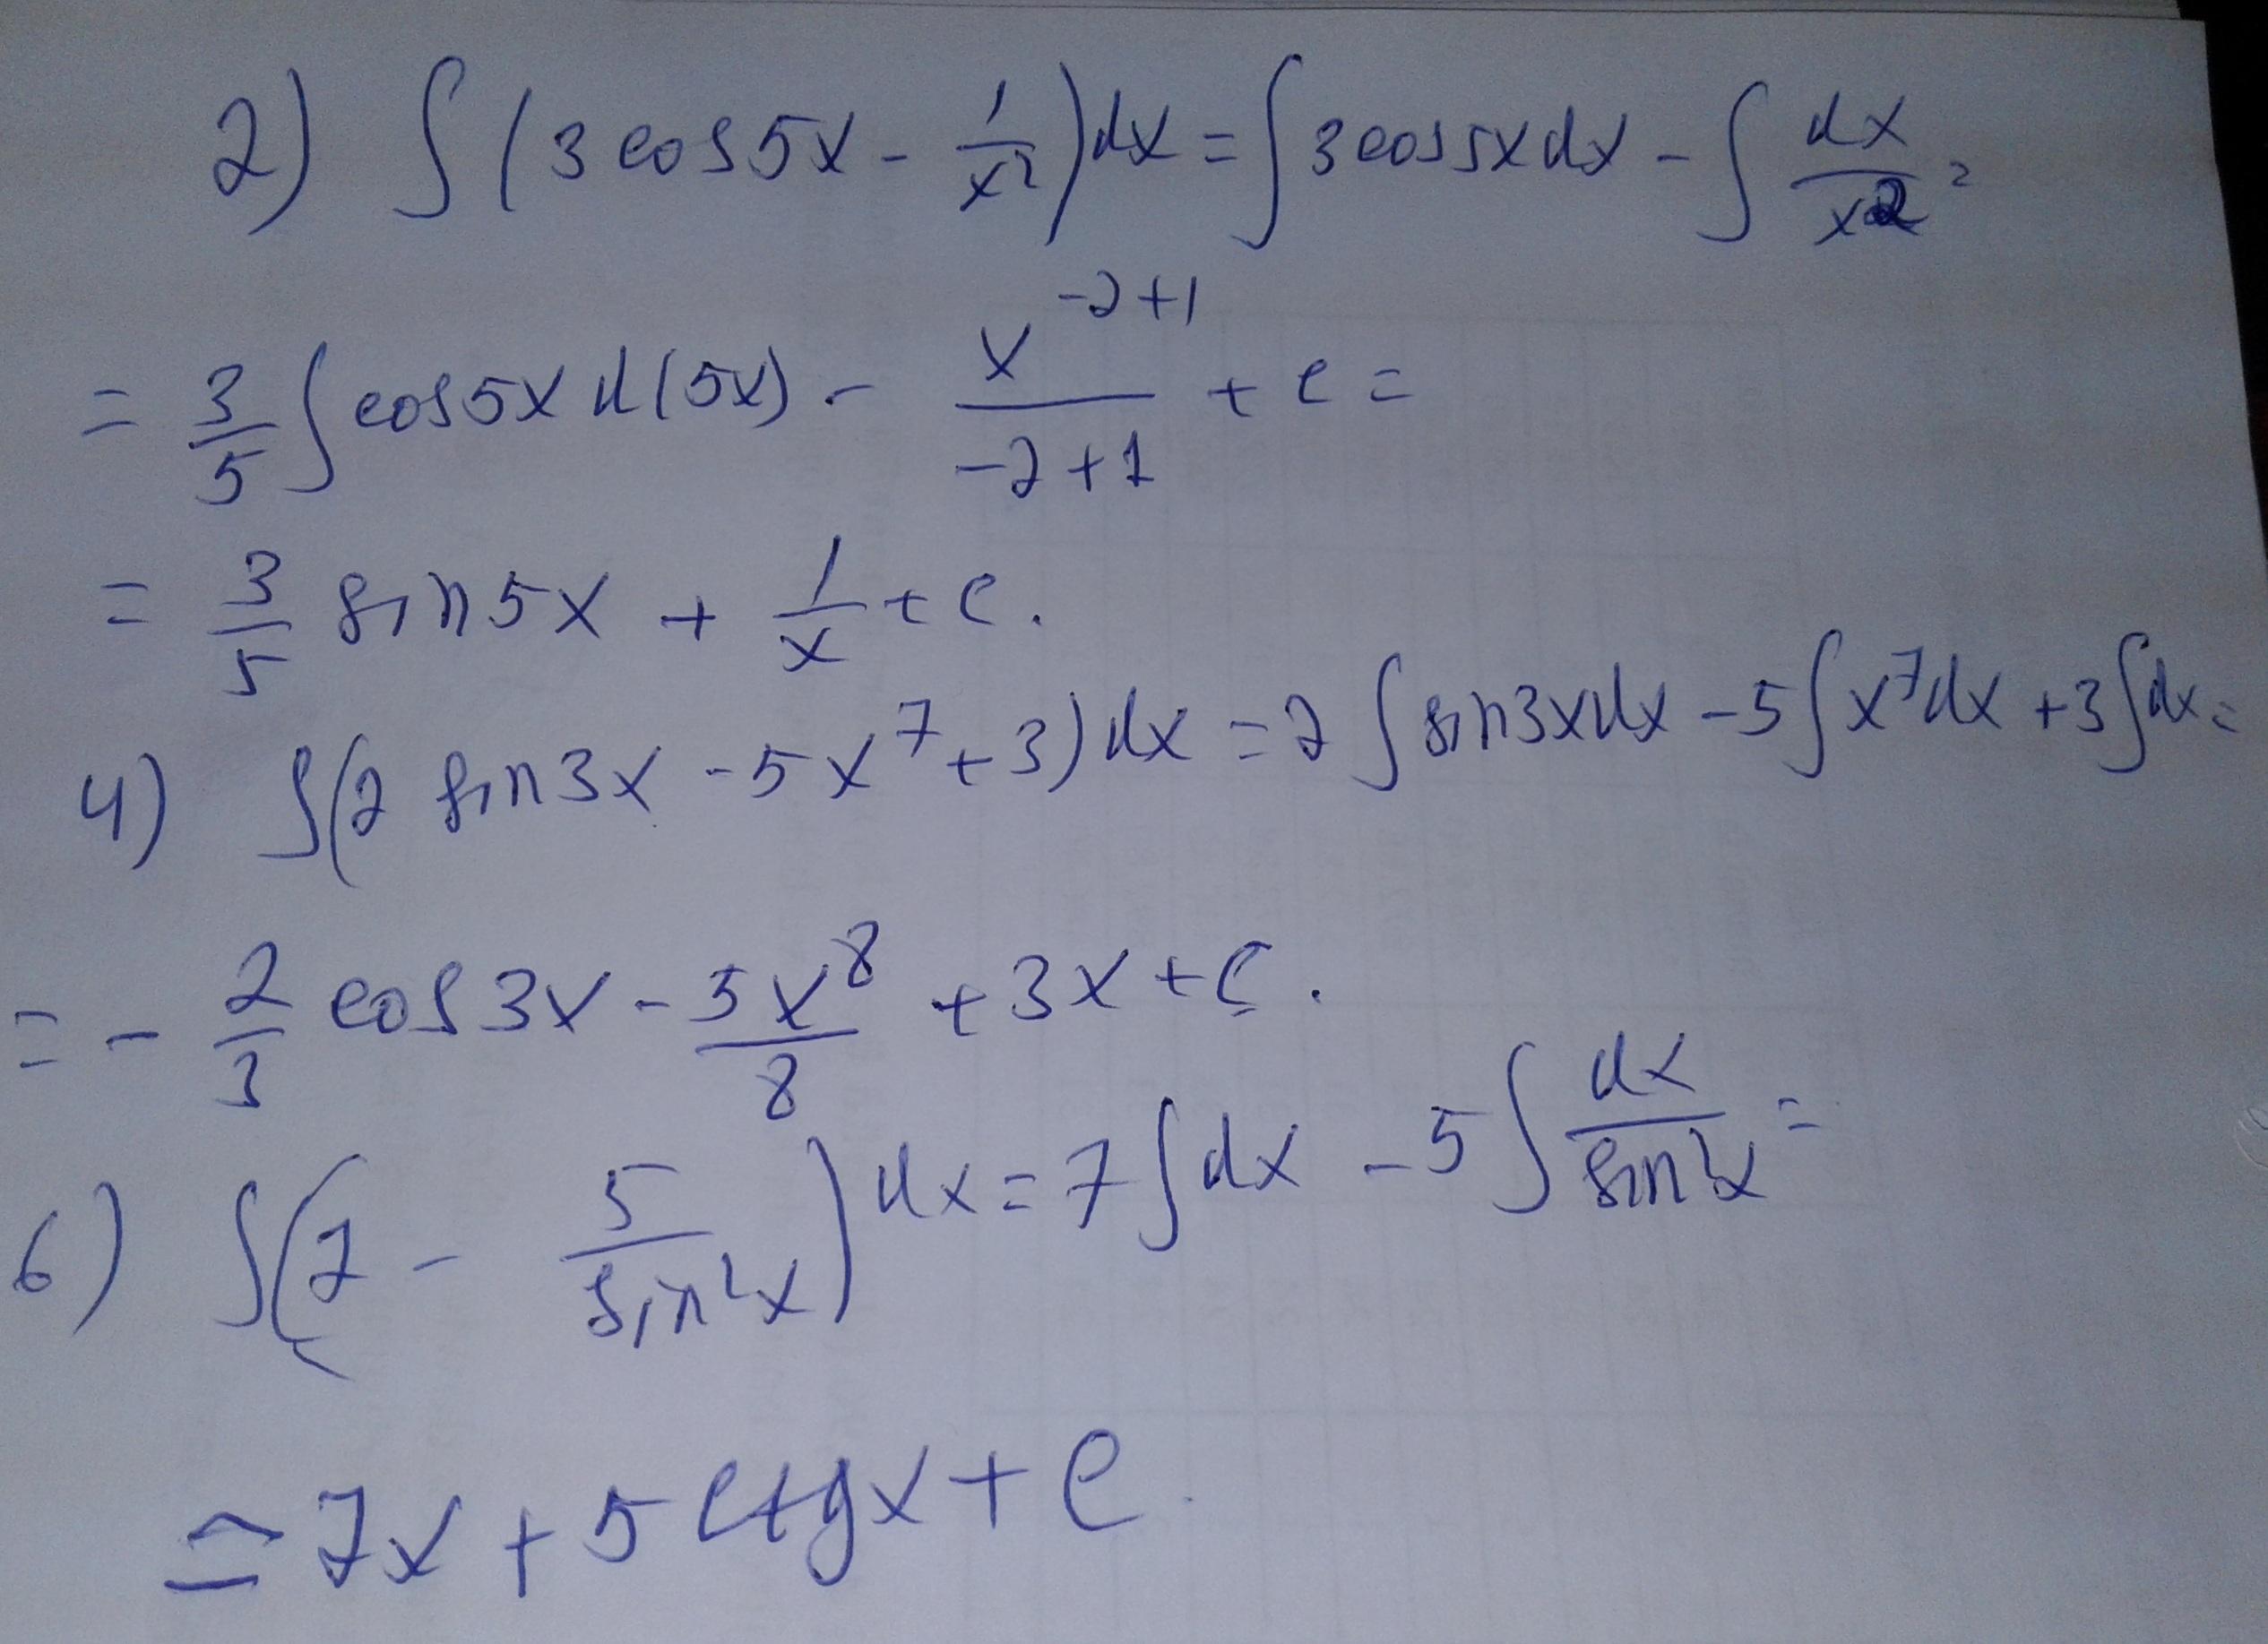 2) ∫(3cos5x - 1/x²)dx = ∫3cos5xdx - ∫dx/x² =
= 3/5 ∫cos5x d(5x) - x^(-2+1)/(-2+1) + c =
= 3/5 sin5x + 1/x + c.
4) ∫(2 sin3x - 5x⁷ + 3)dx = 2∫sin3xdx - 5∫x⁷dx + 3∫dx =
= - 2/3 cos3x - 5x⁸/8 + 3x + c.
6) ∫(7 - 5/sin²x)dx = 7∫dx - 5∫dx/sin²x =
= 7x + 5ctgx + c.